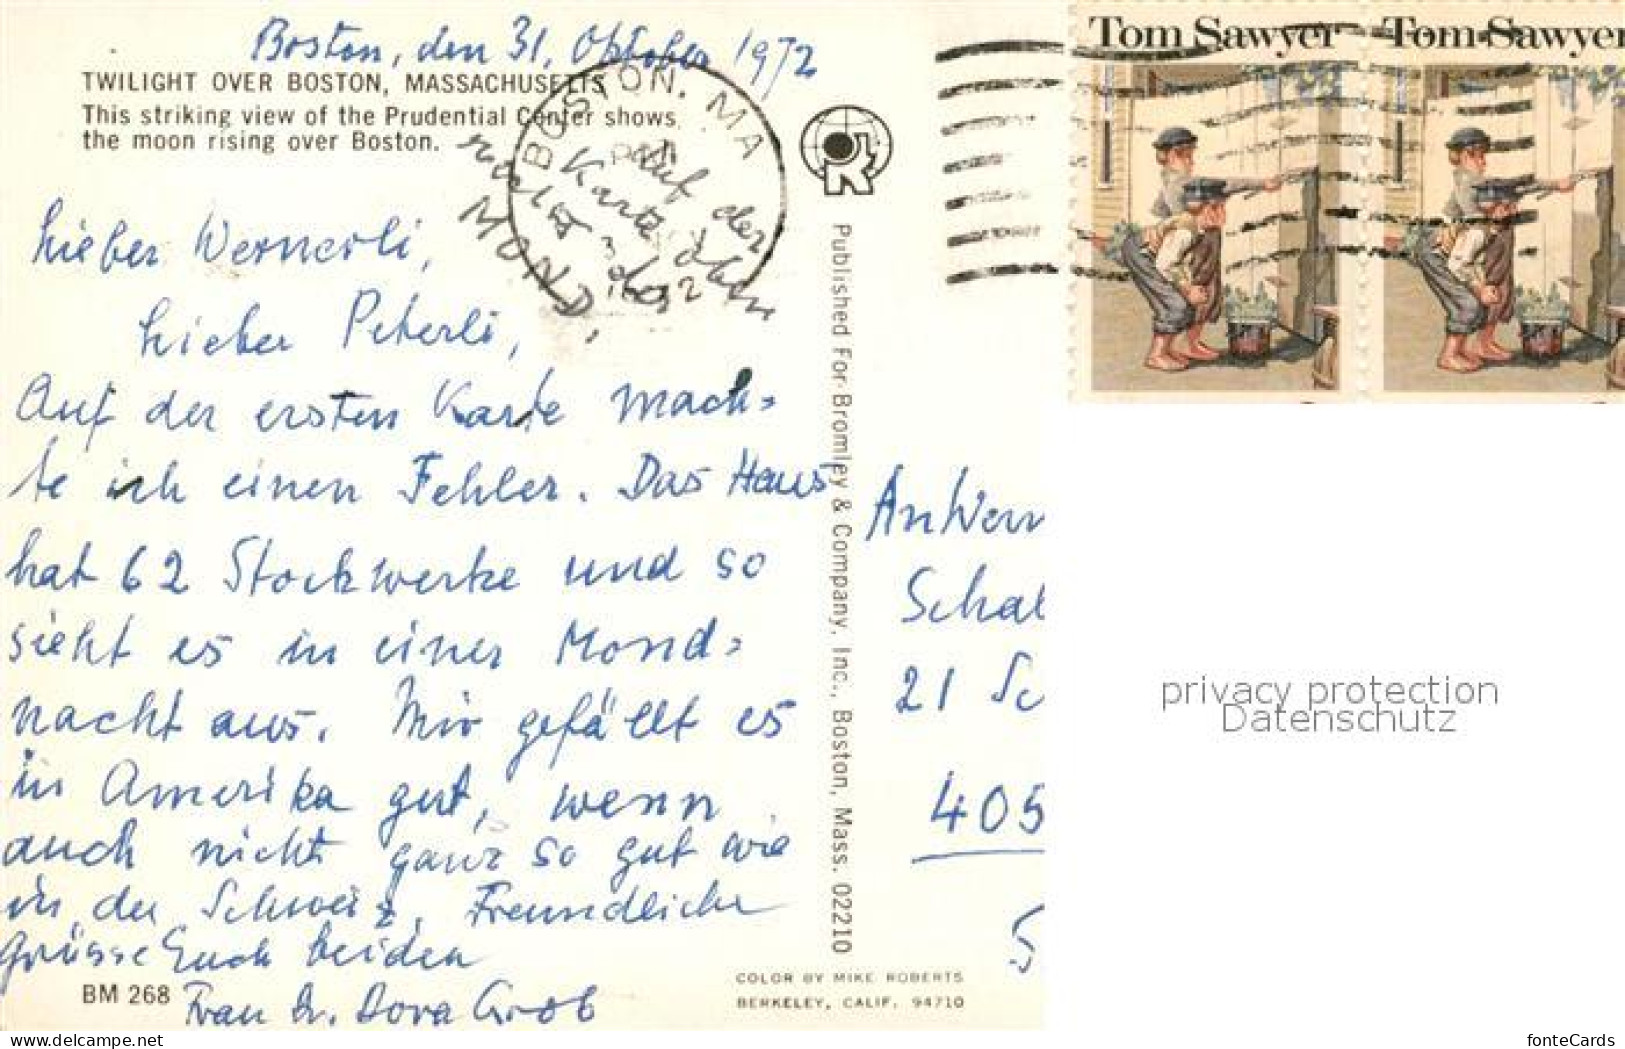 Boston, den 31. Oktober 1972
TWILIGHT OVER BOSTON, MASSACHUSETTS
This striking view of the Prudential Center shows
the moon rising over Boston.
BOSTON, MA
Auf der
Karte oben
MOND
Lieber Wernerli,
Lieber Peterli,
Auf der ersten Karte mach=
te ich einen Fehler. Das Haus
hat 62 Stockwerke und so
sieht es in einer Mond=
nacht aus. Mir gefällt es
in Amerika gut, wenn
auch nicht ganz so gut wie
in der Schweiz. Freundliche
Grüsse Euch beiden
Frau Dr. Dora Grob
BM 268
Published For Bromley & Company, Inc., Boston, Mass. 02210
COLOR BY MIKE ROBERTS
BERKELEY, CALIF. 94710
Tom Sawyer
Tom Sawyer
An Wern
Schal
21 Sc
405
5
privacy protection
Datenschutz
www.delcampe.net
fonteCards